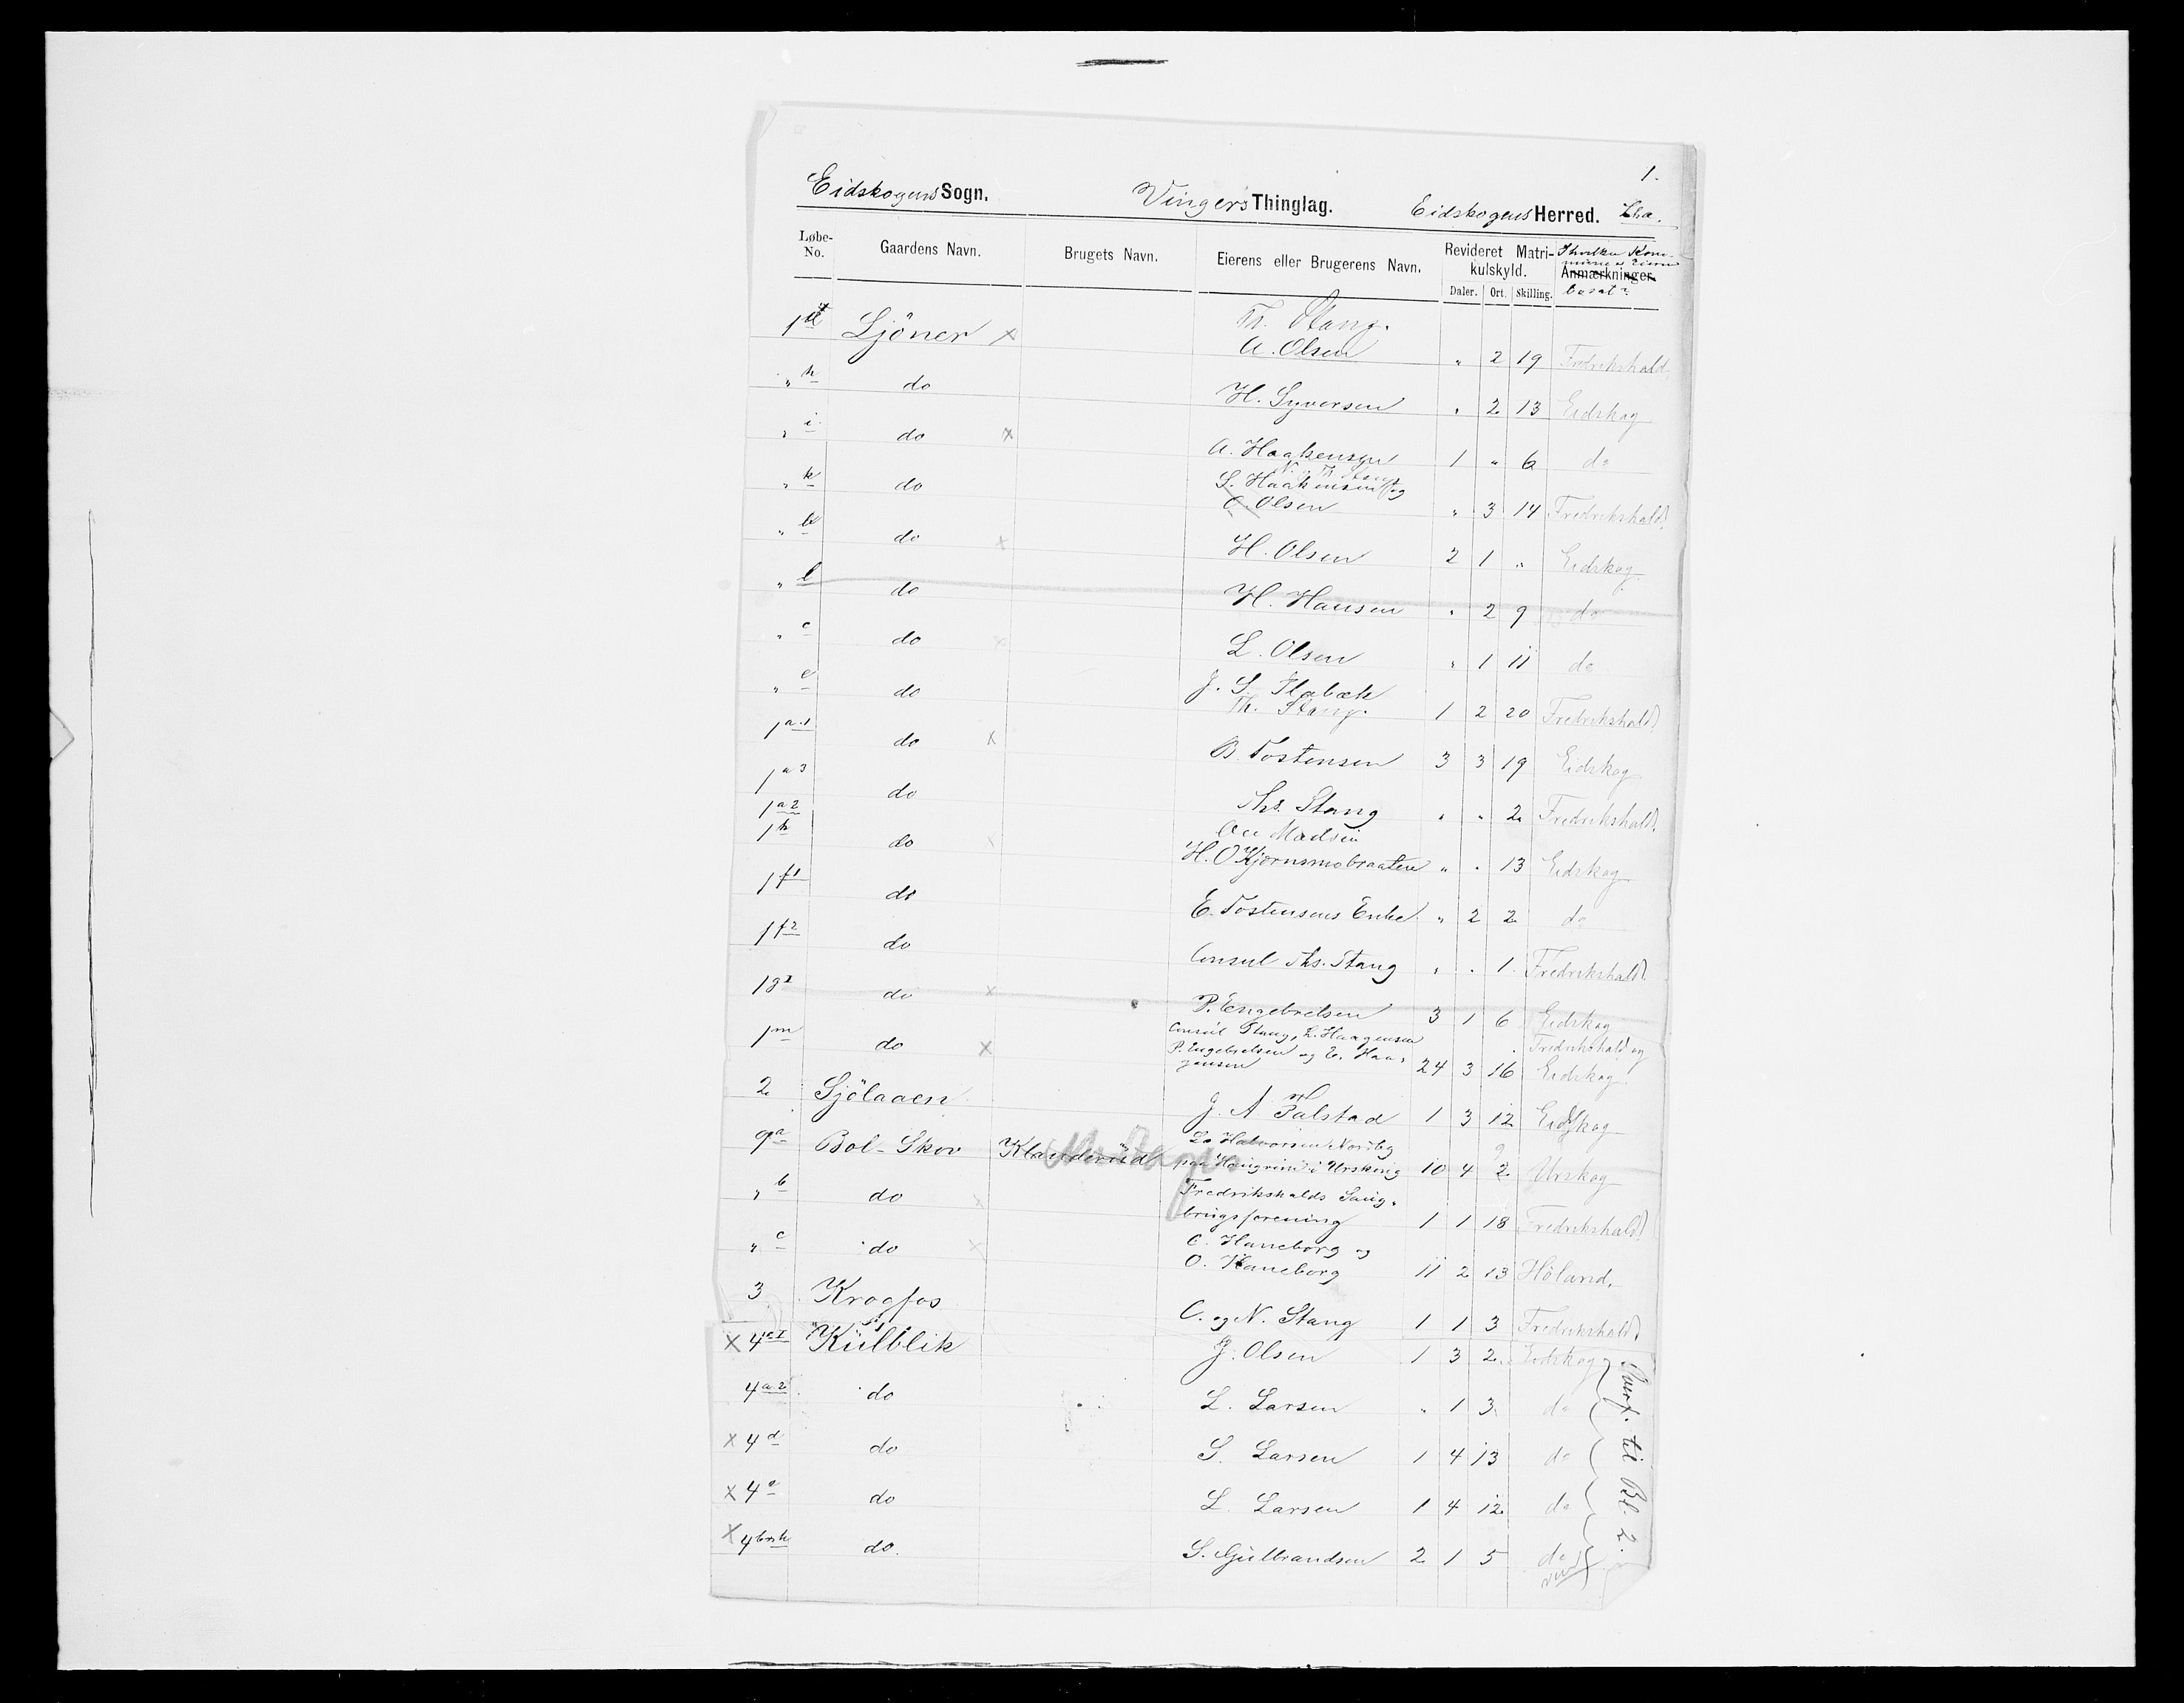 1.
Eidskogens Sogn. Vingers Thinglag. Eidskogens Herred.
Løbe-No. Gaardens Navn. Brugets Navn. Eierens eller Brugerens Navn. Revideret Matrikulskyld. Daler. Ort. Skilling. Anmærkninger.
Ljöner x Th. Stang.
A. Olsen " 2 19 Fredrikshald
" h do H. Syversen " 2 13 Eidskog
" i do x A. Haakensen 1 " 6 do
" k do S. Haakensen og
O. Olsen " 3 14 Fredrikshald
" b do x H. Olsen 2 1 " Eidskog
" l do H. Hansen " 2 9 do
" c do x L. Olsen " 1 11 do
" e do J. S. Flabæk
Th. Stang. 1 2 20 Fredrikshald
1 a.1 do x B. Tostensen 3 3 19 Eidskog
1 a3 do Ths. Stang " " 2 Fredrikshald.
1 a2
1 h do x Ole Madsen
H. O Kjernsmobraaten " " 13 Eidskog
1 f1 do E. Tostensens Enke " 2 2 do
1 f2 do Consul Ths. Stang " " 1 Fredrikshald
1 g I do x P. Engebretsen 3 1 6 Eidskog
1 m do x Consul Stang, L. Haagensen
P. Engebretsen og E. Haa-
gensen 24 3 16 Fredrikshald og
Eidskog
2 Sjölaaen J. A. Palstad 1 3 12 Eidskog
9 a Bol-Skov Klanderud
Halvorsen Nordby
paa i Urskoug 10 4 2 Urskog
" b do x Fredrikshalds Saug-
brugsforening 1 1 18 Fredrikshald
" c do x C. Haneborg og
O. Haneborg 11 2 13 Höland.
3 Krogfos C. og N. Stang 1 1 3 Fredrikshald
x 4 a I Külblik J. Olsen 1 3 2 Eidskog
4 a 2 do L. Larsen " 1 3 do
x 4 d do S. Larsen 1 4 13 do
x 4 e do L. Larsen 1 4 12 do
x 4 do. S. Gulbrandsen 2 1 5 do
Overf. til Bl. 2.